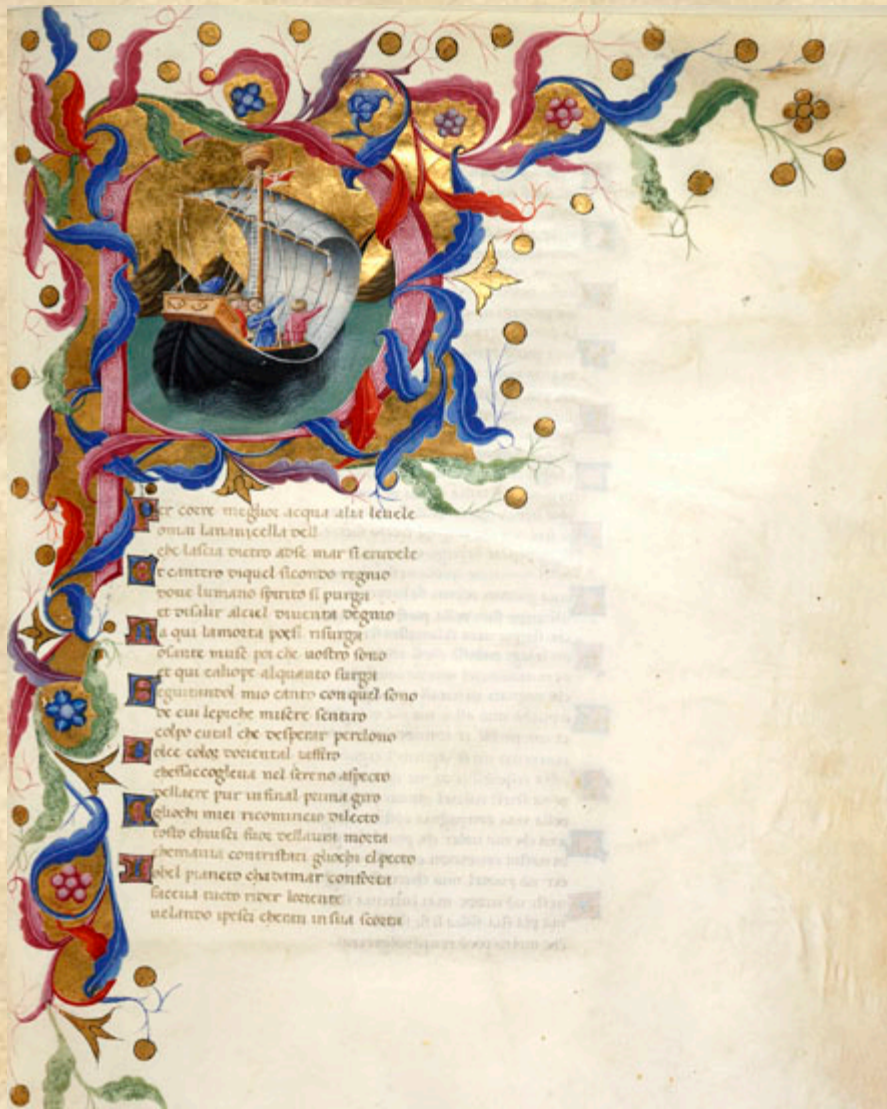 Per corre meglior acqua alza leuele
omai lanauicella dell
che lascia dietro adse mar si crudele
Et cantero diquel sicondo regnio
doue lumano spirito si purga
et disalir alciel diuenta degnio
Ma qui lamorta poesi risurga
osante muse poi che uostro sono
et qui caliope alquanto surga
Seguitandol mio canto con quel sono
di cui lepiche misere sentiro
colpo cutal che desperar perdono
Dolce color doriental zaffiro
chessaccoglieua nel sereno aspecto
dellaere pur infinal primo giro
Agliochi miei ricomincio dilecto
tosto chiusci fuor dellaura morta
chemauia contristati gliochi elpecto
Lobel pianeto chadamar conforta
faceua tucto rider loriente
uelando ipesci cheran in sua scorta